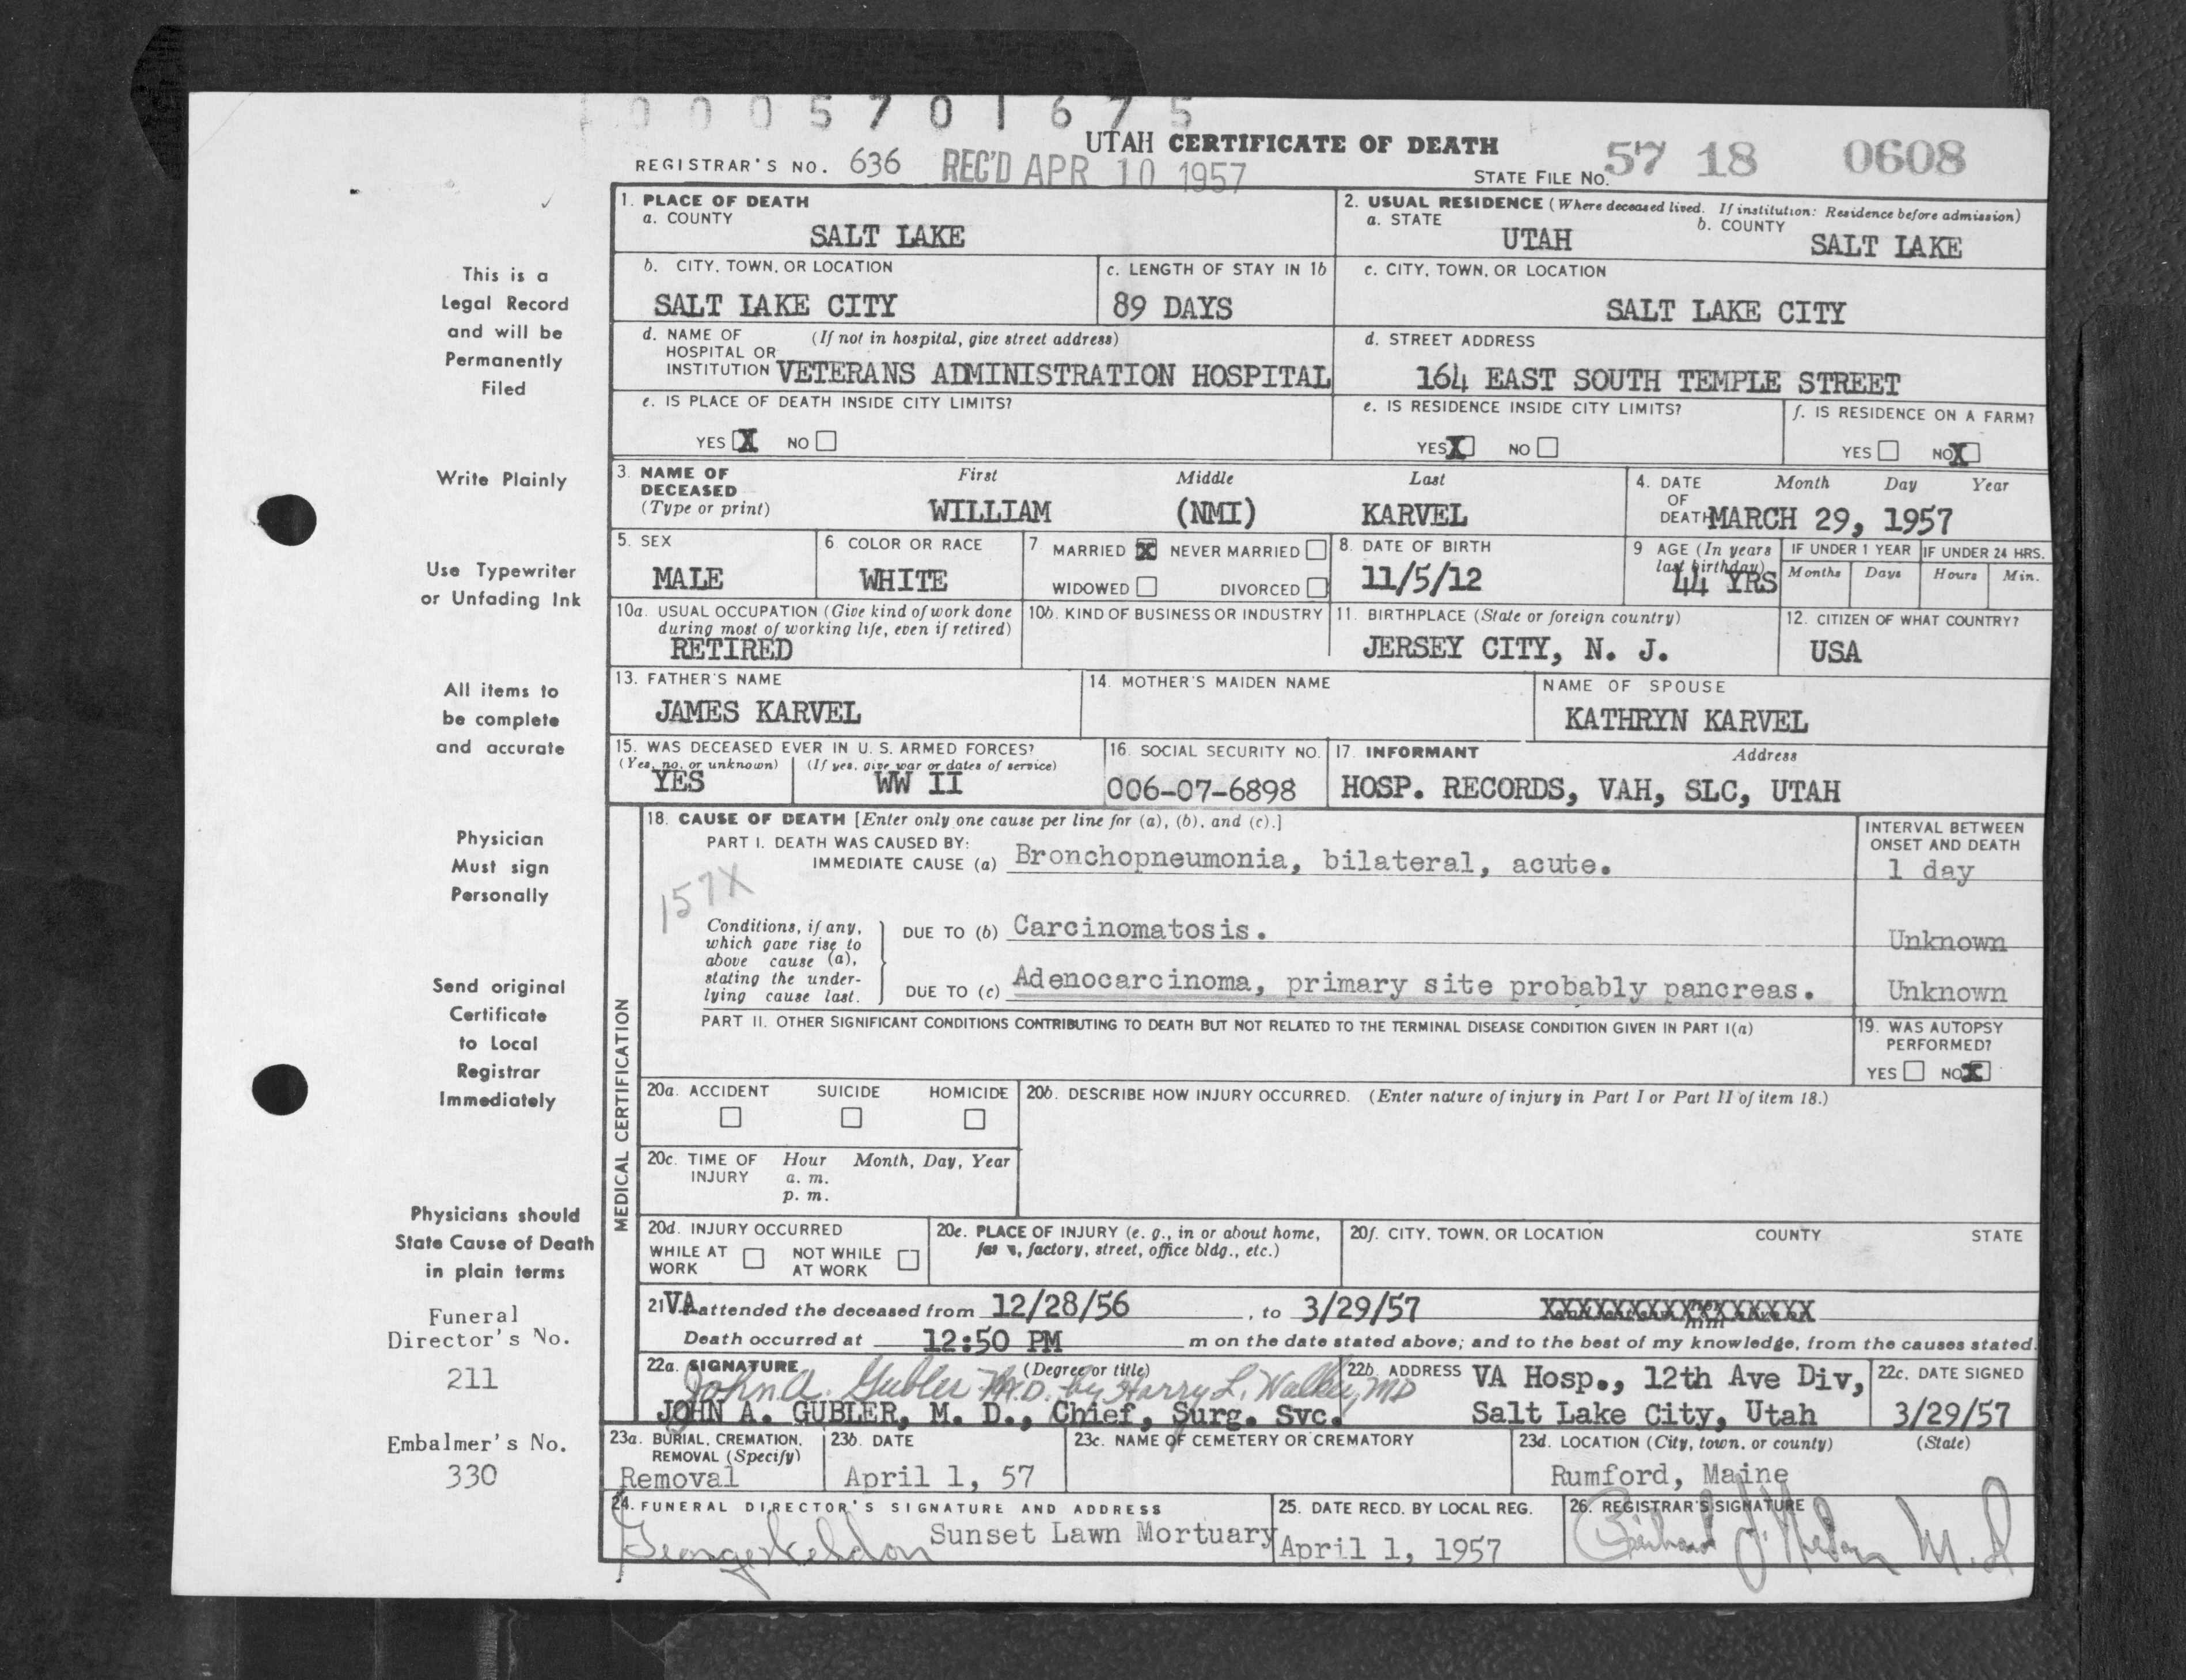 0005701675
UTAH CERTIFICATE OF DEATH
REGISTRAR'S NO. 636 REC'D APR 10 1957 STATE FILE NO. 57 18 0608
This is a
Legal Record
and will be
Permanently
Filed
Write Plainly
Use Typewriter
or Unfading Ink
All items to
be complete
and accurate
Physician
Must sign
Personally
Send original
Certificate
to Local
Registrar
Immediately
Physicians should
State Cause of Death
in plain terms
Funeral
Director's No.
211
Embalmer's No.
330
1. PLACE OF DEATH
a. COUNTY
SALT LAKE
2. USUAL RESIDENCE (Where deceased lived. If institution: Residence before admission)
a. STATE b. COUNTY
UTAH SALT LAKE
b. CITY, TOWN, OR LOCATION c. LENGTH OF STAY IN 1b
SALT LAKE CITY 89 DAYS
c. CITY, TOWN, OR LOCATION
SALT LAKE CITY
d. NAME OF (If not in hospital, give street address)
HOSPITAL OR
INSTITUTION VETERANS ADMINISTRATION HOSPITAL
d. STREET ADDRESS
164 EAST SOUTH TEMPLE STREET
e. IS PLACE OF DEATH INSIDE CITY LIMITS?
YES X NO
e. IS RESIDENCE INSIDE CITY LIMITS?
YES X NO
f. IS RESIDENCE ON A FARM?
YES NO X
3. NAME OF First Middle Last
DECEASED
(Type or print) WILLIAM (NMI) KARVEL
4. DATE Month Day Year
OF
DEATH MARCH 29, 1957
5. SEX
MALE
6 COLOR OR RACE
WHITE
7 MARRIED X NEVER MARRIED
WIDOWED DIVORCED
8. DATE OF BIRTH
11/5/12
9 AGE (In years
last birthday)
44 YRS
IF UNDER 1 YEAR IF UNDER 24 HRS.
Months Days Hours Min.
10a. USUAL OCCUPATION (Give kind of work done
during most of working life, even if retired)
RETIRED
10b. KIND OF BUSINESS OR INDUSTRY
11. BIRTHPLACE (State or foreign country)
JERSEY CITY, N. J.
12. CITIZEN OF WHAT COUNTRY?
USA
13. FATHER'S NAME
JAMES KARVEL
14. MOTHER'S MAIDEN NAME
NAME OF SPOUSE
KATHRYN KARVEL
15. WAS DECEASED EVER IN U. S. ARMED FORCES?
(Yes, no, or unknown) (If yes, give war or dates of service)
YES WW II
16. SOCIAL SECURITY NO.
006-07-6898
17. INFORMANT Address
HOSP. RECORDS, VAH, SLC, UTAH
MEDICAL CERTIFICATION
18. CAUSE OF DEATH [Enter only one cause per line for (a), (b), and (c).]
PART I. DEATH WAS CAUSED BY:
IMMEDIATE CAUSE (a) Bronchopneumonia, bilateral, acute.
INTERVAL BETWEEN
ONSET AND DEATH
1 day
157X
Conditions, if any,
which gave rise to
above cause (a),
stating the under-
lying cause last.
DUE TO (b) Carcinomatosis. Unknown
DUE TO (c) Adenocarcinoma, primary site probably pancreas. Unknown
PART II. OTHER SIGNIFICANT CONDITIONS CONTRIBUTING TO DEATH BUT NOT RELATED TO THE TERMINAL DISEASE CONDITION GIVEN IN PART I(a)
19. WAS AUTOPSY
PERFORMED?
YES NO X
20a. ACCIDENT SUICIDE HOMICIDE
20b. DESCRIBE HOW INJURY OCCURRED. (Enter nature of injury in Part I or Part II of item 18.)
20c. TIME OF Hour Month, Day, Year
INJURY a. m.
p. m.
20d. INJURY OCCURRED
WHILE AT NOT WHILE
WORK AT WORK
20e. PLACE OF INJURY (e. g., in or about home,
farm, factory, street, office bldg., etc.)
20f. CITY, TOWN, OR LOCATION COUNTY STATE
21 VA attended the deceased from 12/28/56, to 3/29/57 XXXXXXXXXXXXXXXXX
Death occurred at 12:50 PM m on the date stated above; and to the best of my knowledge, from the causes stated.
22a. SIGNATURE (Degree or title)
John A. Gubler M.D. by Harry L. Walker, MD
JOHN A. GUBLER, M. D., Chief, Surg. Svc.
22b. ADDRESS VA Hosp., 12th Ave Div,
Salt Lake City, Utah
22c. DATE SIGNED
3/29/57
23a. BURIAL, CREMATION,
REMOVAL (Specify)
Removal
23b. DATE
April 1, 57
23c. NAME OF CEMETERY OR CREMATORY
23d. LOCATION (City, town, or county) (State)
Rumford, Maine
24. FUNERAL DIRECTOR'S SIGNATURE AND ADDRESS
Sunset Lawn Mortuary
25. DATE RECD. BY LOCAL REG.
April 1, 1957
26. REGISTRAR'S SIGNATURE
M.D